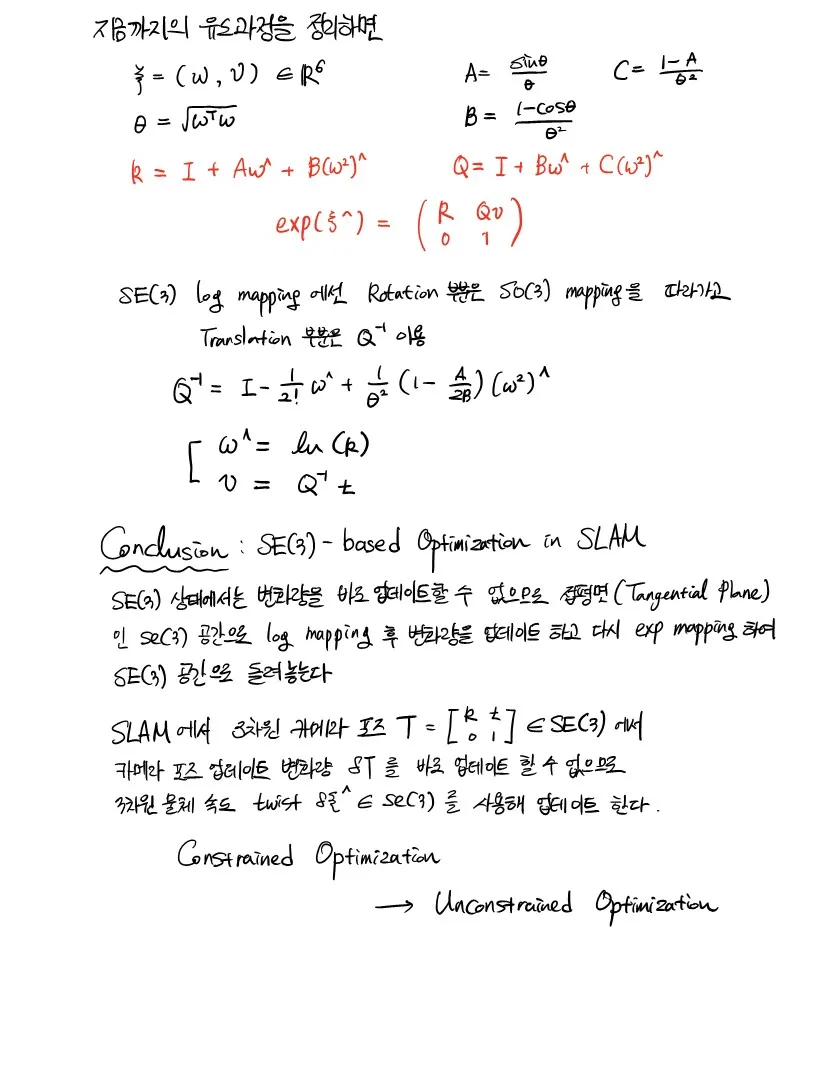 지금까지의 유도과정을 정리하면
ξ = (ω, v) ∈ ℝ⁶    A = sinθ/θ    C = (1-A)/θ²
θ = √(ωᵀω)    B = (1-cosθ)/θ²
R = I + Aω^ + B(ω²)^    Q = I + Bω^ + C(ω²)^
exp(ξ^) = ( R Qv ; 0 1 )
SE(3) log mapping 에선 Rotation 부분은 SO(3) mapping을 따라가고
Translation 부분은 Q⁻¹ 이용
Q⁻¹ = I - 1/2! ω^ + 1/θ² (1 - A/2B) (ω²)^
[ ω^ = ln(R)
v = Q⁻¹ t
Conclusion : SE(3)-based Optimization in SLAM
SE(3) 상태에서는 변화량을 바로 업데이트할 수 없으므로 접평면(Tangential Plane)
인 se(3) 공간으로 log mapping 후 변화량을 업데이트 하고 다시 exp mapping 하여
SE(3) 공간으로 돌려놓는다
SLAM에서 3차원 카메라 포즈 T = [ R t ; 0 1 ] ∈ SE(3) 에서
카메라 포즈 업데이트 변화량 δT 를 바로 업데이트 할 수 없으므로
3차원 물체 속도 twist δξ^ ∈ se(3) 를 사용해 업데이트 한다.
Constrained Optimization
→ Unconstrained Optimization